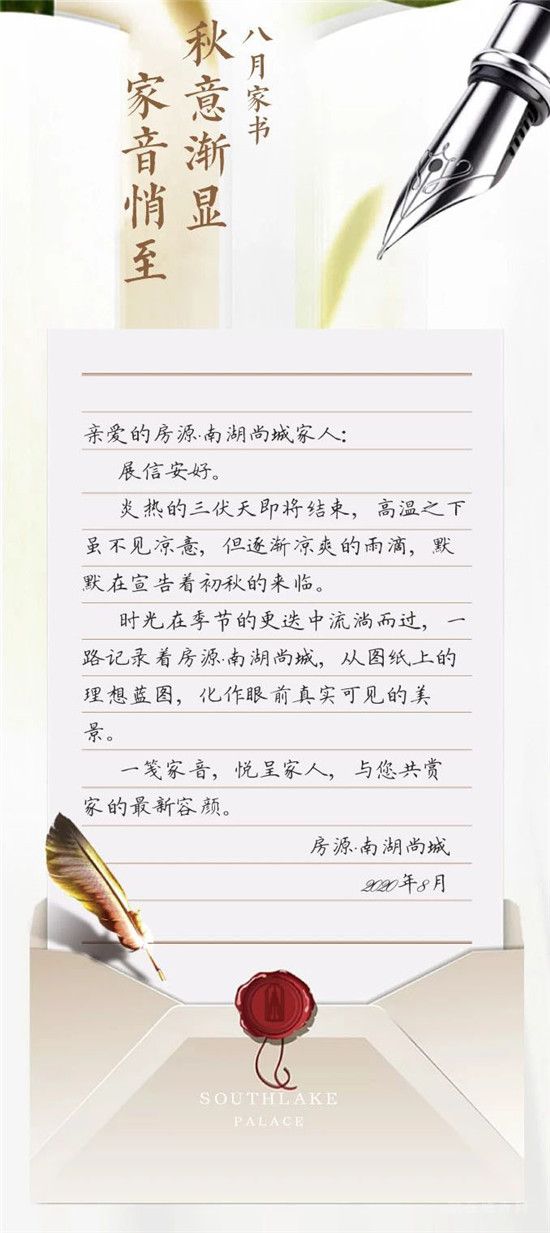 八月家书
秋意渐显
家音悄至
亲爱的房源·南湖尚城家人：
展信安好。
炎热的三伏天即将结束，高温之下
虽不见凉意，但逐渐凉爽的雨滴，默
默在宣告着初秋的来临。
时光在季节的更迭中流淌而过，一
路记录着房源·南湖尚城，从图纸上的
理想蓝图，化作眼前真实可见的美
景。
一笺家音，悦呈家人，与您共赏
家的最新容颜。
房源·南湖尚城
2020年8月
SOUTHLAKE
PALACE